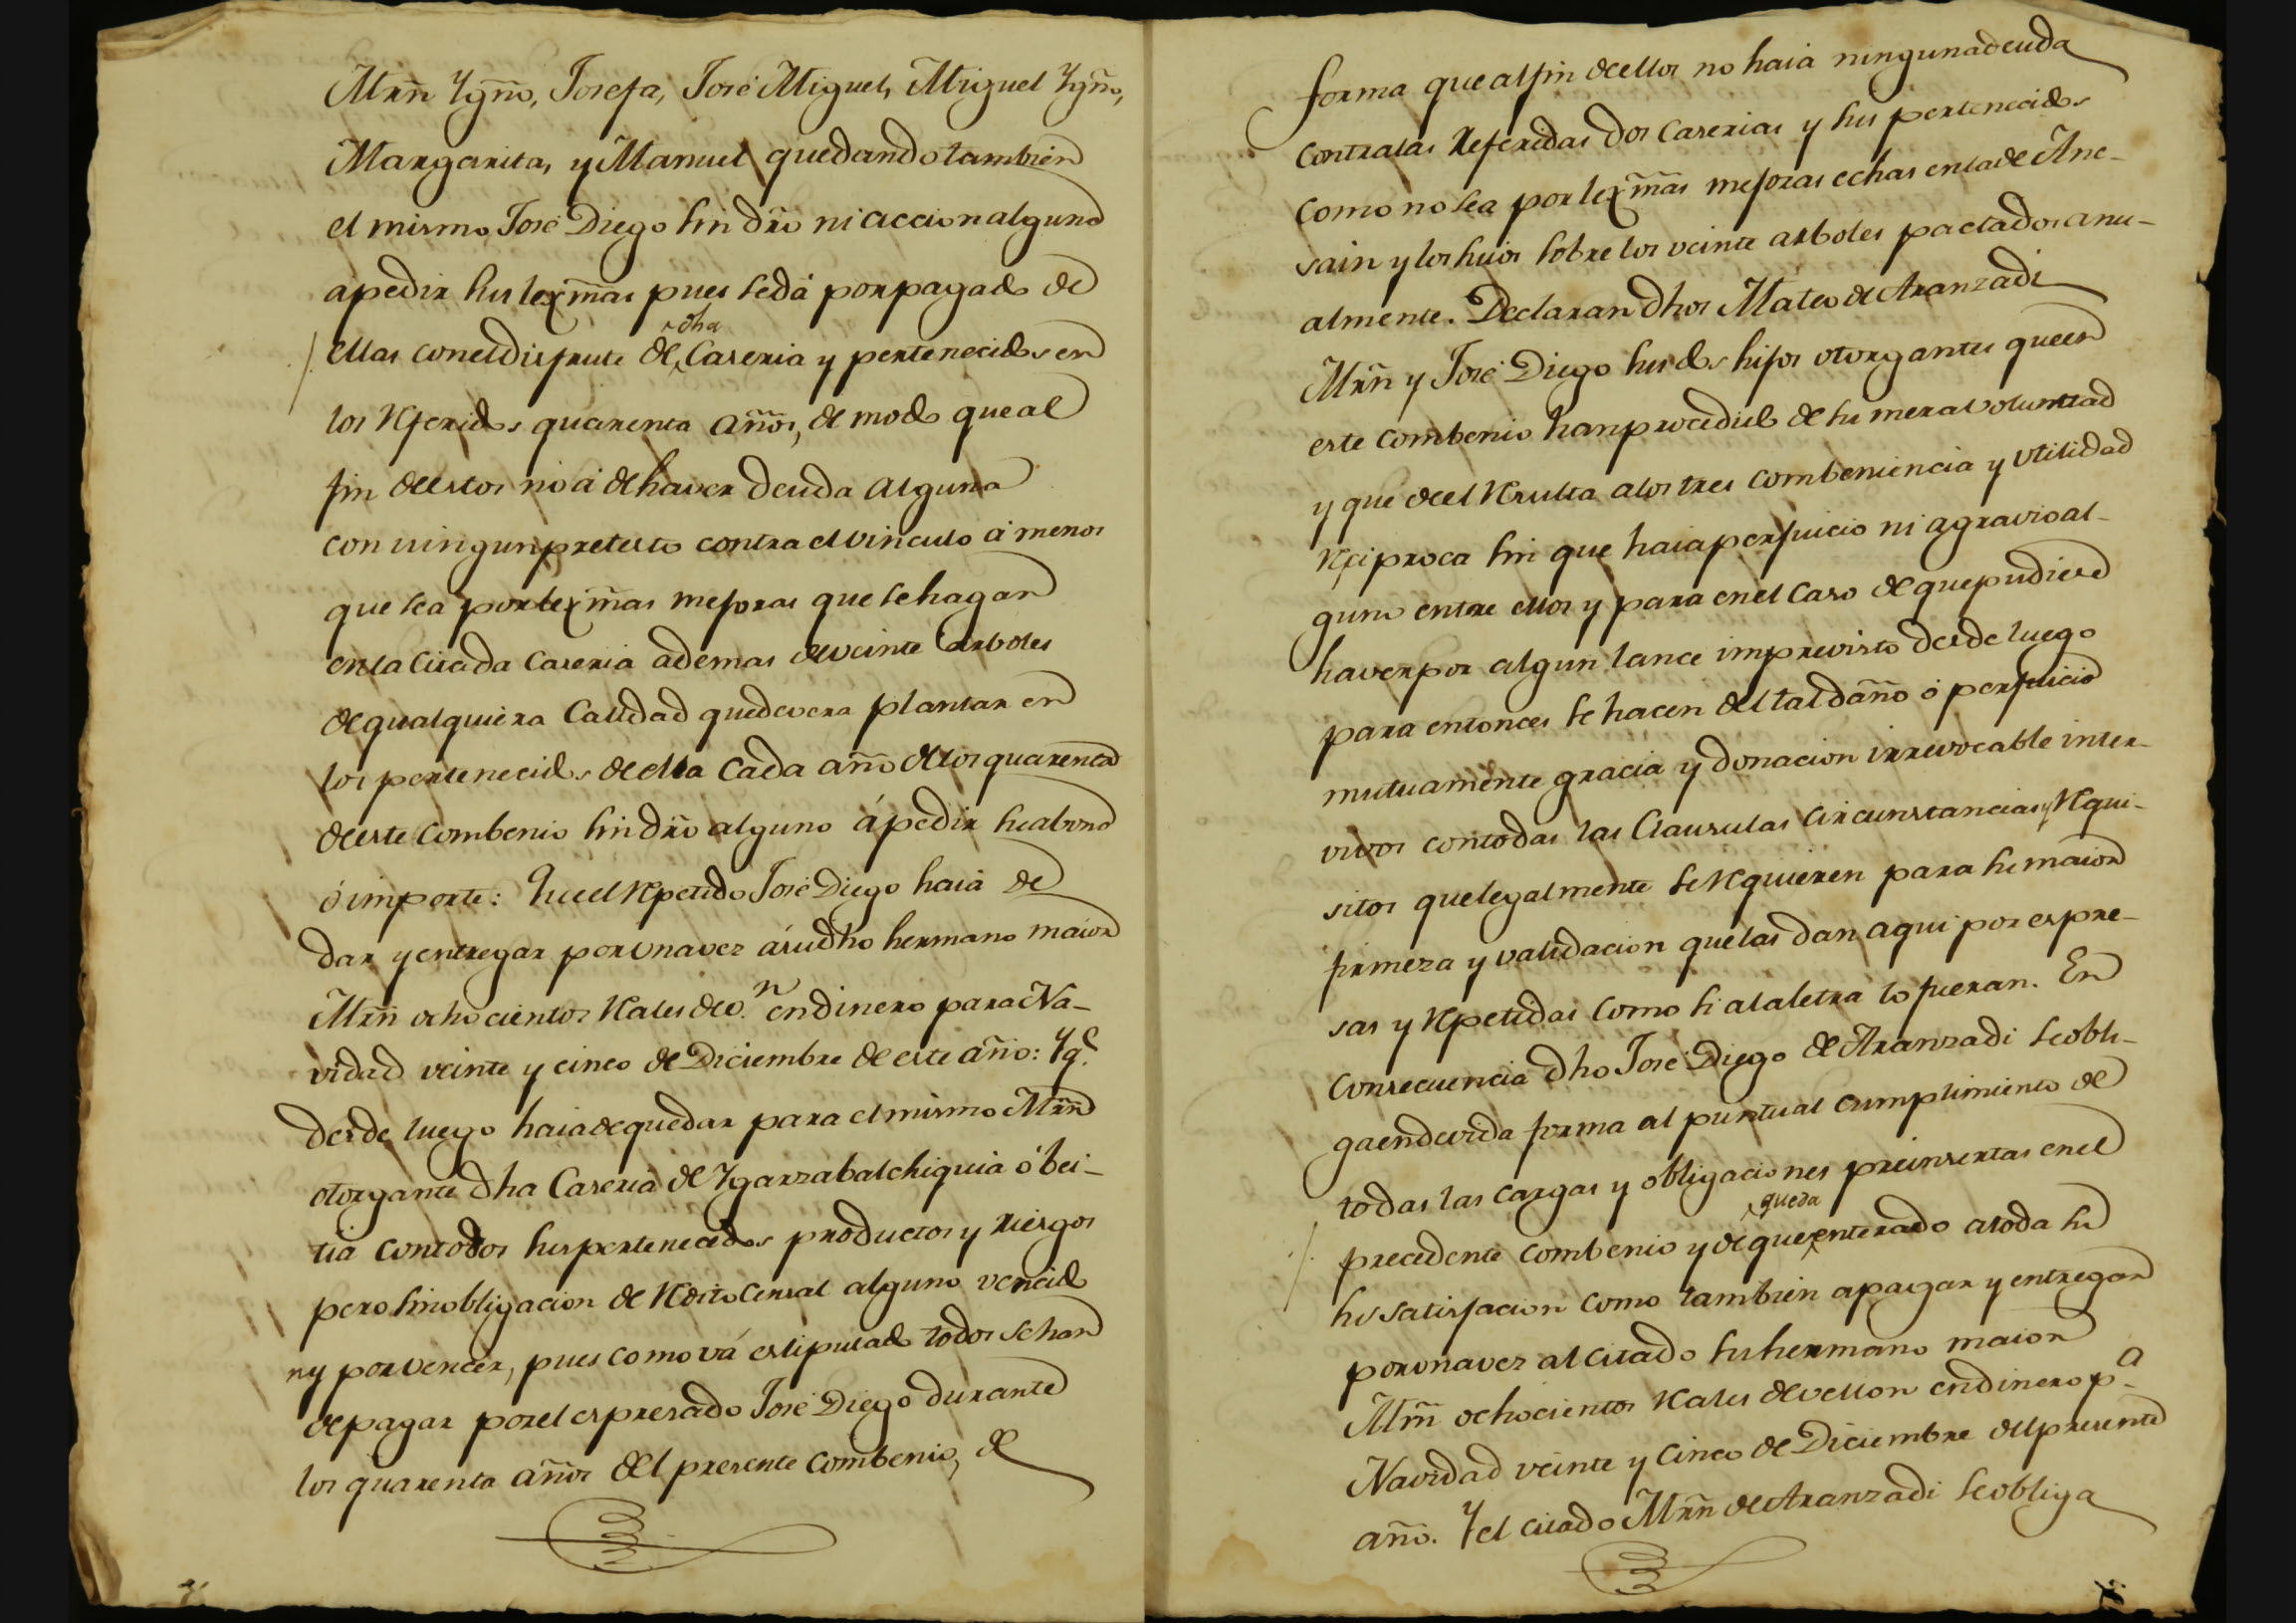 Mrñ Ygño, Josefa, José Miguel, Miguel Ygño,
Margarita, y Manuel quedando tambien
el mismo José Diego sin dr̃o ni accion alguno
a pedir sus lexm̃as pues se dá por pagado de
ellas con el disfrute de dha Caseria y pertenecidos en
los referidos quarenta años, de modo que al
fin de estos no á de haver deuda alguna
con ningun pretesto contra el vinculo á menos
que sea por lexm̃as mejoras que se hagan
en la citada Caseria ademas de veinte arboles
de qualquiera calidad que devera plantar en
los pertenecidos de ella cada año de los quarenta
de este combenio sin dr̃o alguno á pedir su abono
ó importe: Que el repetido José Diego haia de
dar y entregar por una vez á su dho hermano maior
Mrñ ochocientos reales de v.n en dinero para Na-
vidad veinte y cinco de Diciembre de este año: Y q.e
desde luego haia de quedar para el mismo Mrñ
otorgante dha Caseria de Ygarzabalchiquia ó bei-
tia con todos sus pertenecidos productos y riesgos
pero sin obligacion de redito censal alguno vencido
ny por vencer, pues como vá estipulado todos se han
de pagar por el espresado José Diego durante
los quarenta años del presente combenio, de
forma que al fin de ellos no haia ninguna deuda
contra las referidas dos Caserias y sus pertenecidos
como no sea por lexm̃as mejoras echas en la de Ane-
sain y los suios sobre los veinte arboles pactados anu-
almente. Declaran dhos Mateo de Aranzadi
Mrñ y José Diego sus dos hijos otorgantes que en
este combenio han procedido de su mera voluntad
y que de el resulta a los tres combeniencia y utilidad
reciproca sin que haia perjuicio ni agravio al-
guno entre ellos y para en el caso de que pudiera
haver por algun lance imprevisto desde luego
para entonces se hacen del tal daño ó perjuicio
mutuamente gracia y donacion irrevocable inter-
vivos con todas las clausulas circunstancias y requi-
sitos que legalmente se requieren para su maior
firmeza y validacion que las dan aqui por espre-
sas y repetidas como si a la letra lo fueran. En
consecuencia dho José Diego de Aranzadi se obli-
ga en devida forma al puntual cumplimiento de
todas las cargas y obligaciones preinsertas en el
precedente combenio y de que queda enterado a toda su
su satisfacion como tambien a pagar y entregar
por una vez al citado su hermano maior
Mrñ ochocientos reales de vellon en dinero p.a
Navidad veinte y cinco de Diciembre del presente
año. Y el citado Mrñ de Aranzadi se obliga